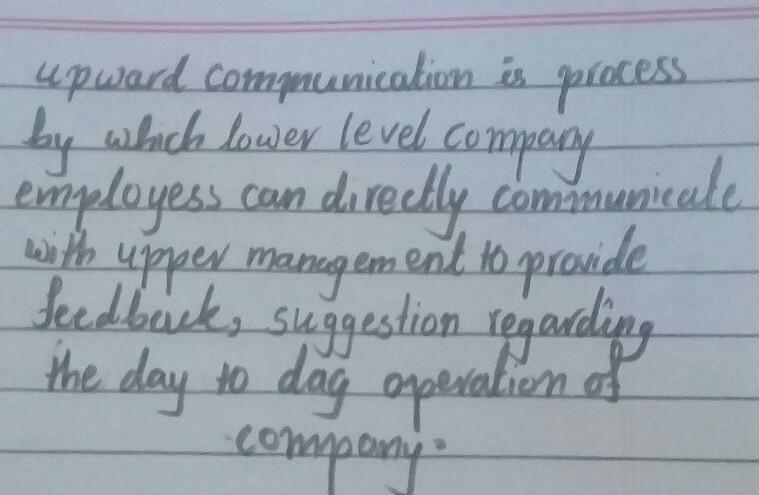 upward communication is process
by which lower level company
employess can directly communicate
with upper management to provide
feedback, suggestion regarding
the day to day operation of
company.